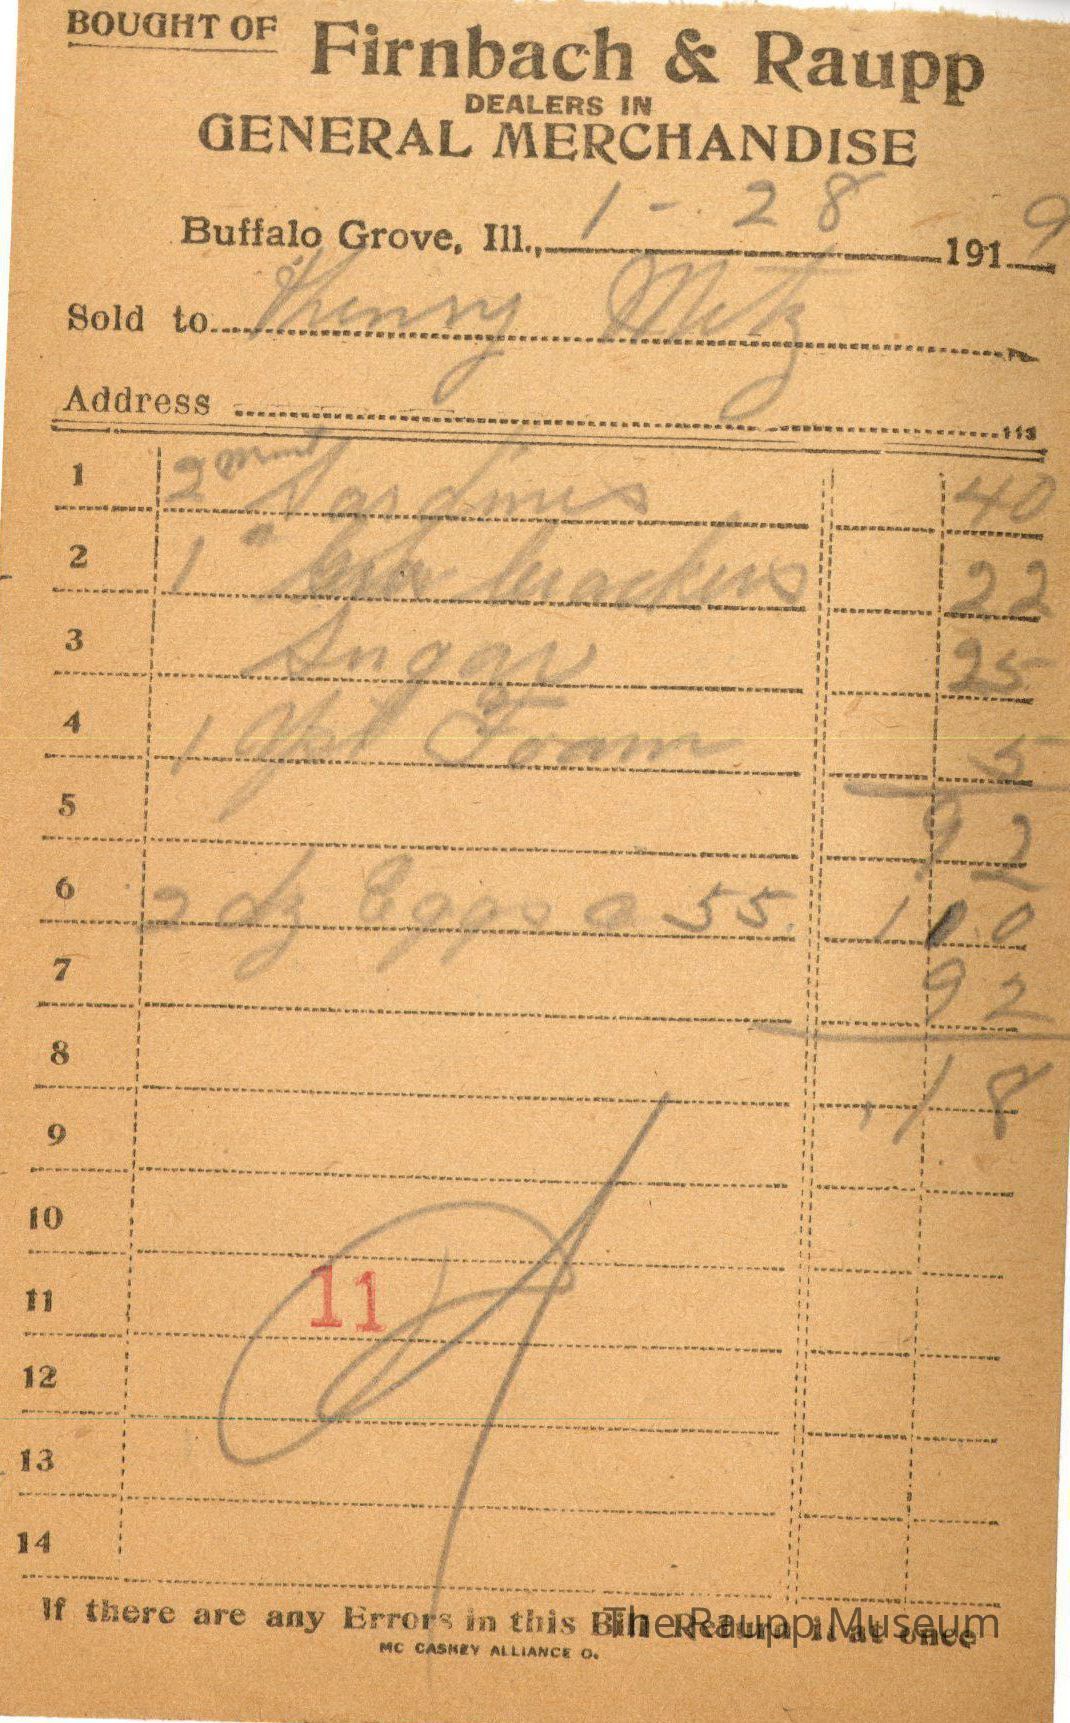 BOUGHT OF Firnbach & Raupp
DEALERS IN
GENERAL MERCHANDISE
Buffalo Grove, Ill., 1-28 1919
Sold to Henry Metz
Address
113
1 2 Sardines 40
2 1 Crackers 22
3 Sugar 25
4 1 Foam 5
5 92
6 2 dz Eggs @ 55. 1 10
7 92
8 .18
9
10
11 11
12
13
14
If there are any Errors in this Bill Return it at once
The Raupp Museum
MC CASKEY ALLIANCE O.